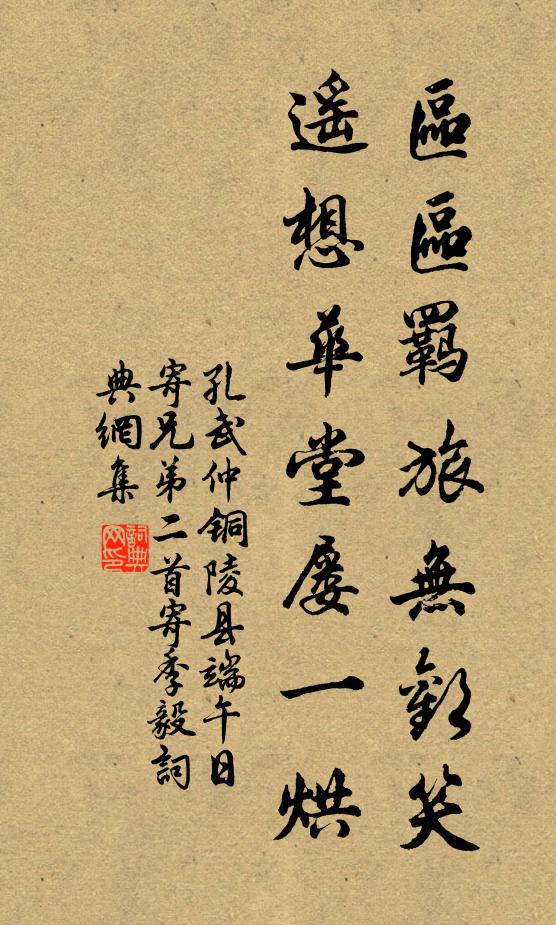 區區羈旅無歡笑
遥想華堂屡一烘
孔武仲铜陵县端午日
寄兄弟二首寄季毅詞
典網集
詞典网印